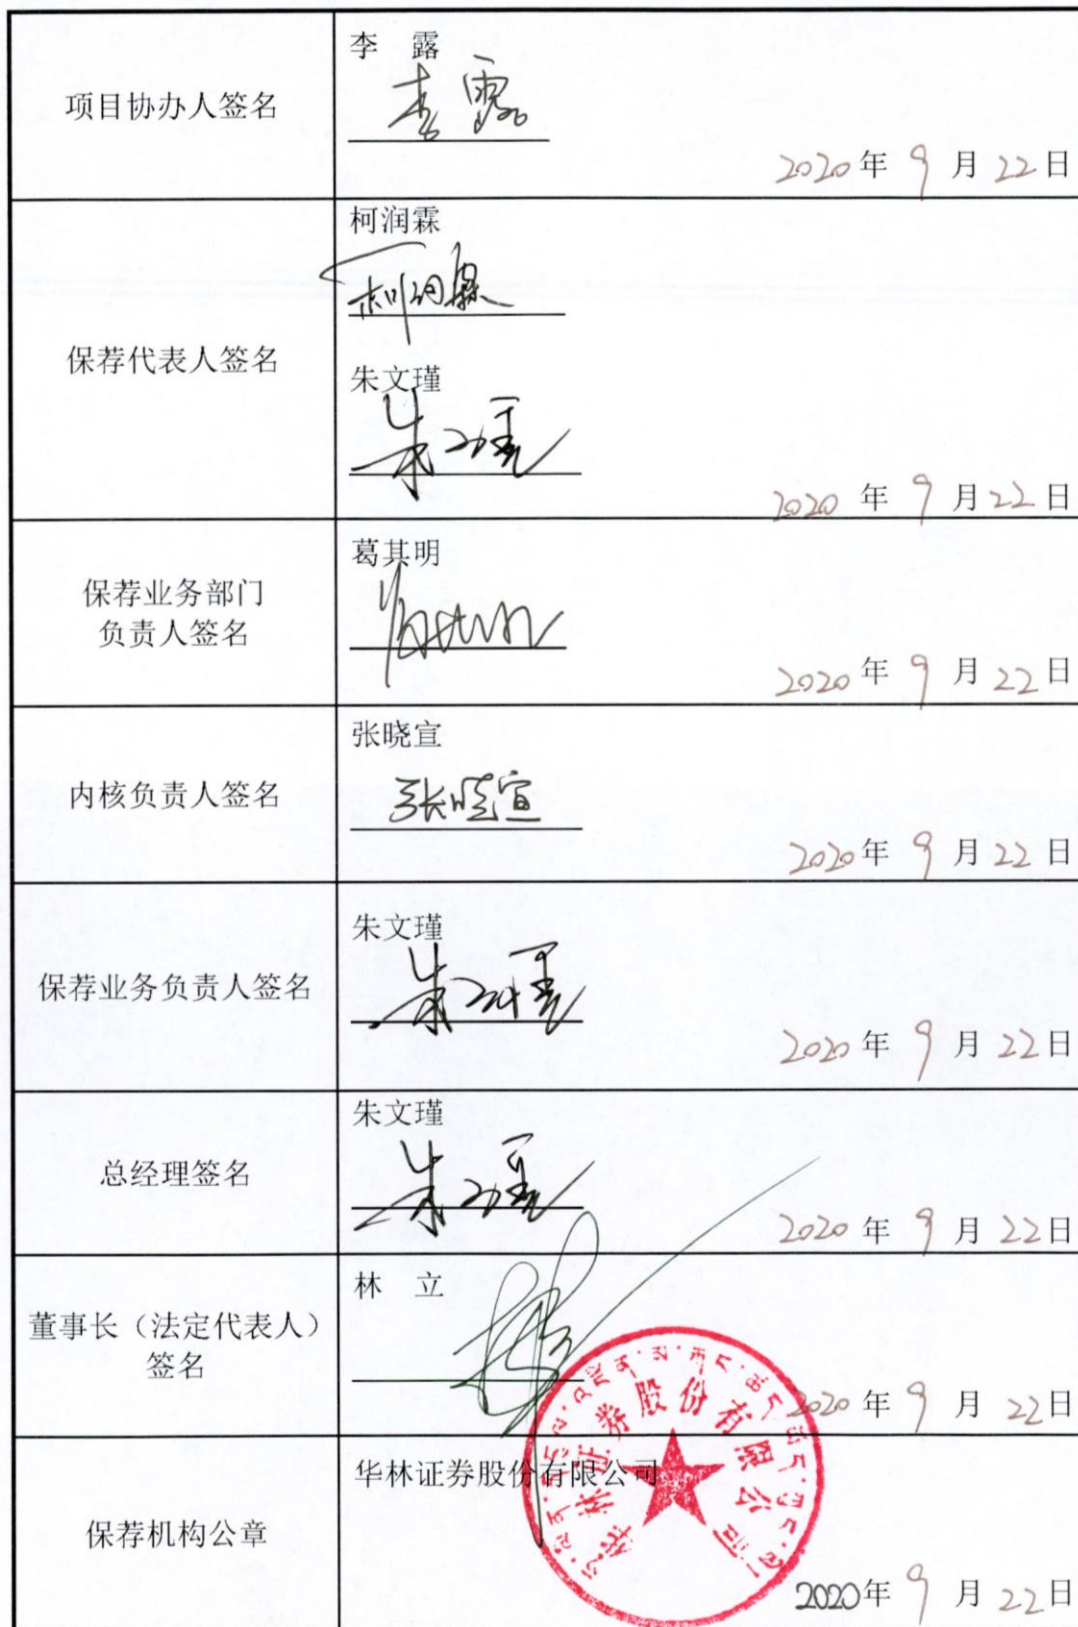 项目协办人签名
李 露
李露
2020年 9 月 22日
保荐代表人签名
柯润霖
柯润霖
朱文瑾
朱文瑾
2020 年 9 月22日
保荐业务部门
负责人签名
葛其明
2020年 9 月 22日
内核负责人签名
张晓宣
张晓宣
2020年 9 月22日
保荐业务负责人签名
朱文瑾
朱文瑾
2020年 9 月 22日
总经理签名
朱文瑾
朱文瑾
2020年 9 月 22日
董事长（法定代表人）
签名
林 立
2020年 9 月 22日
保荐机构公章
华林证券股份有限公司
华林证券股份有限公司
2020年 9 月 22日